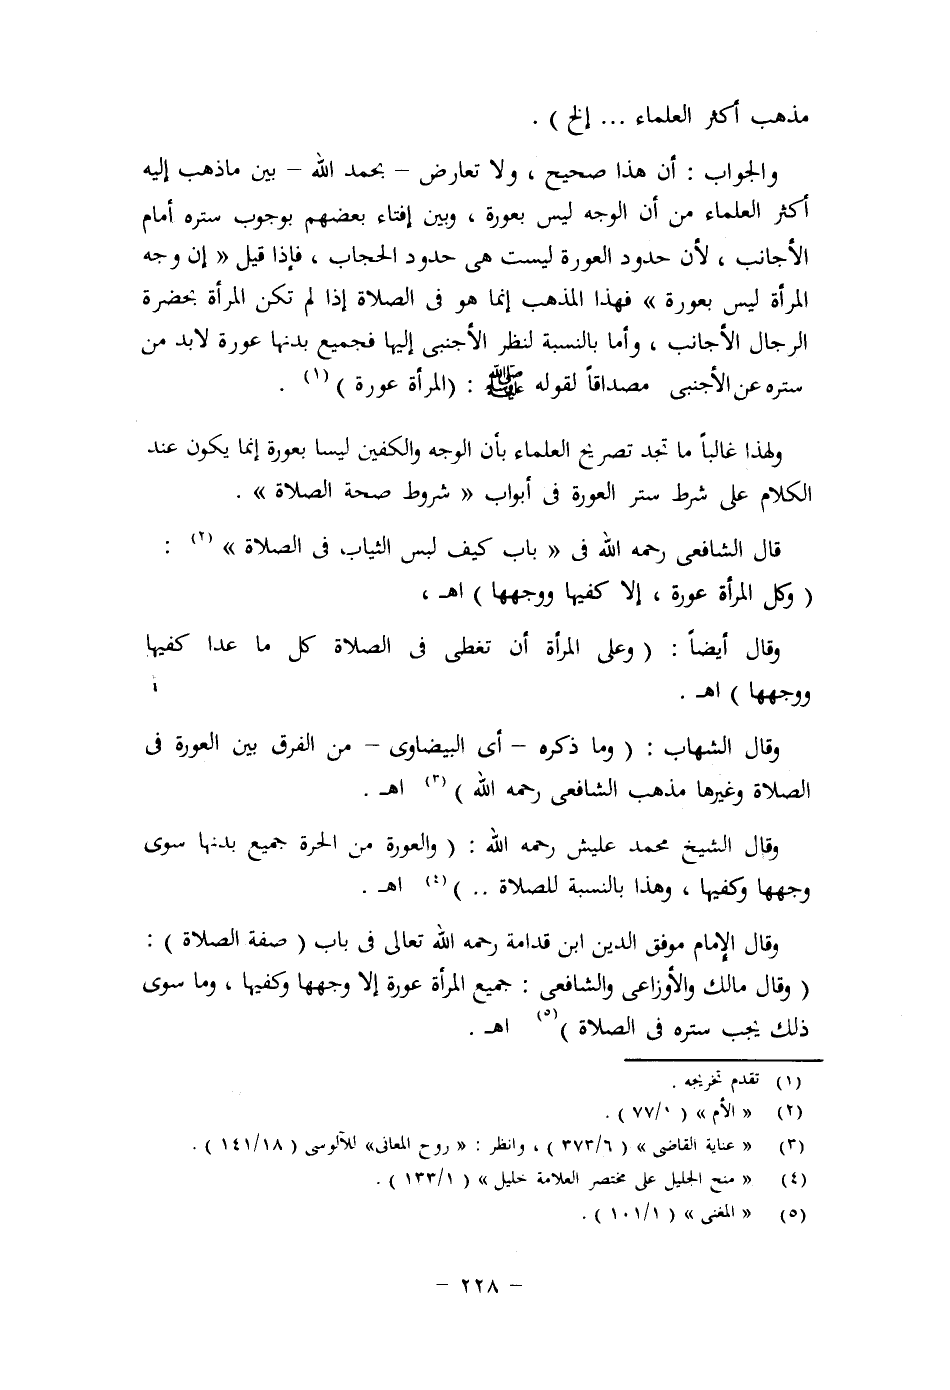 مذهب أكثر العلماء ... إلخ ) .
والجواب : أن هذا صحيح ، ولا تعارض – بحمد الله – بين ماذهب إليه
أكثر العلماء من أن الوجه ليس بعورة ، وبين إفتاء بعضهم بوجوب ستره أمام
الأجانب ، لأن حدود العورة ليست هى حدود الحجاب ، فإذا قيل « إن وجه
المرأة ليس بعورة » فهذا المذهب إنما هو فى الصلاة إذا لم تكن المرأة بحضرة
الرجال الأجانب ، وأما بالنسبة لنظر الأجنبى إليها فجميع بدنها عورة لابد من
ستره عن الأجنبى مصداقاً لقوله ﷺ : (المرأة عورة )(١) .
ولهذا غالباً ما تجد تصريح العلماء بأن الوجه والكفين ليسا بعورة إنما يكون عند
الكلام على شرط ستر العورة فى أبواب « شروط صحة الصلاة » .
قال الشافعى رحمه الله فى « باب كيف لبس الثياب فى الصلاة » (٢) :
( وكل المرأة عورة ، إلا كفيها ووجهها ) اهـ ،
وقال أيضاً : ( وعلى المرأة أن تغطى فى الصلاة كل ما عدا كفيها
ووجهها ) اهـ .
وقال الشهاب : ( وما ذكره – أى البيضاوى – من الفرق بين العورة فى
الصلاة وغيرها مذهب الشافعى رحمه الله )(٣) اهـ .
وقال الشيخ محمد عليش رحمه الله : ( والعورة من الحرة جميع بدنها سوى
وجهها وكفيها ، وهذا بالنسبة للصلاة .. )(٤) اهـ .
وقال الإمام موفق الدين ابن قدامة رحمه الله تعالى فى باب ( صفة الصلاة ) :
( وقال مالك والأوزاعى والشافعى : جميع المرأة عورة إلا وجهها وكفيها ، وما سوى
ذلك يجب ستره فى الصلاة )(٥) اهـ .
(١) تقدم تخريجه .
(٢) « الأم » ( ٧٧/١ ) .
(٣) « عناية القاضى » ( ٣٧٣/٦ ) ، وانظر : « روح المعانى» للآلوسى ( ١٤١/١٨ ) .
(٤) « منح الجليل على مختصر العلامة خليل » ( ١٣٣/١ ) .
(٥) « المغنى » ( ١٠١/١ ) .
– ٢٢٨ –